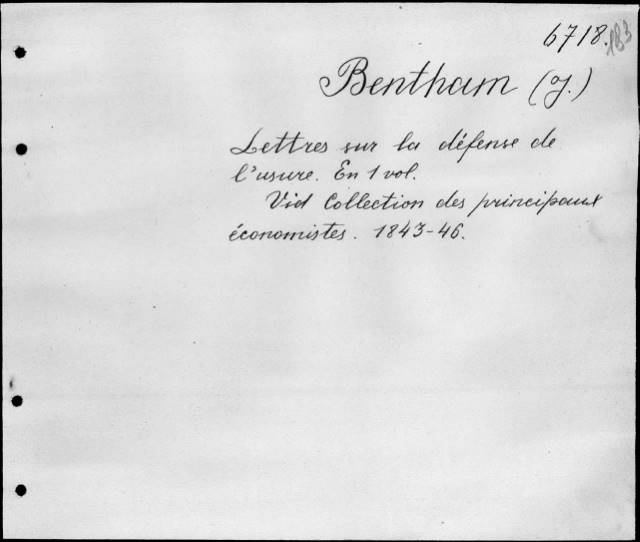 6718.
183
Bentham (J.)
Lettres sur la défense de
l'usure. En 1 vol.
Vid Collection des principaux
économistes. 1843-46.